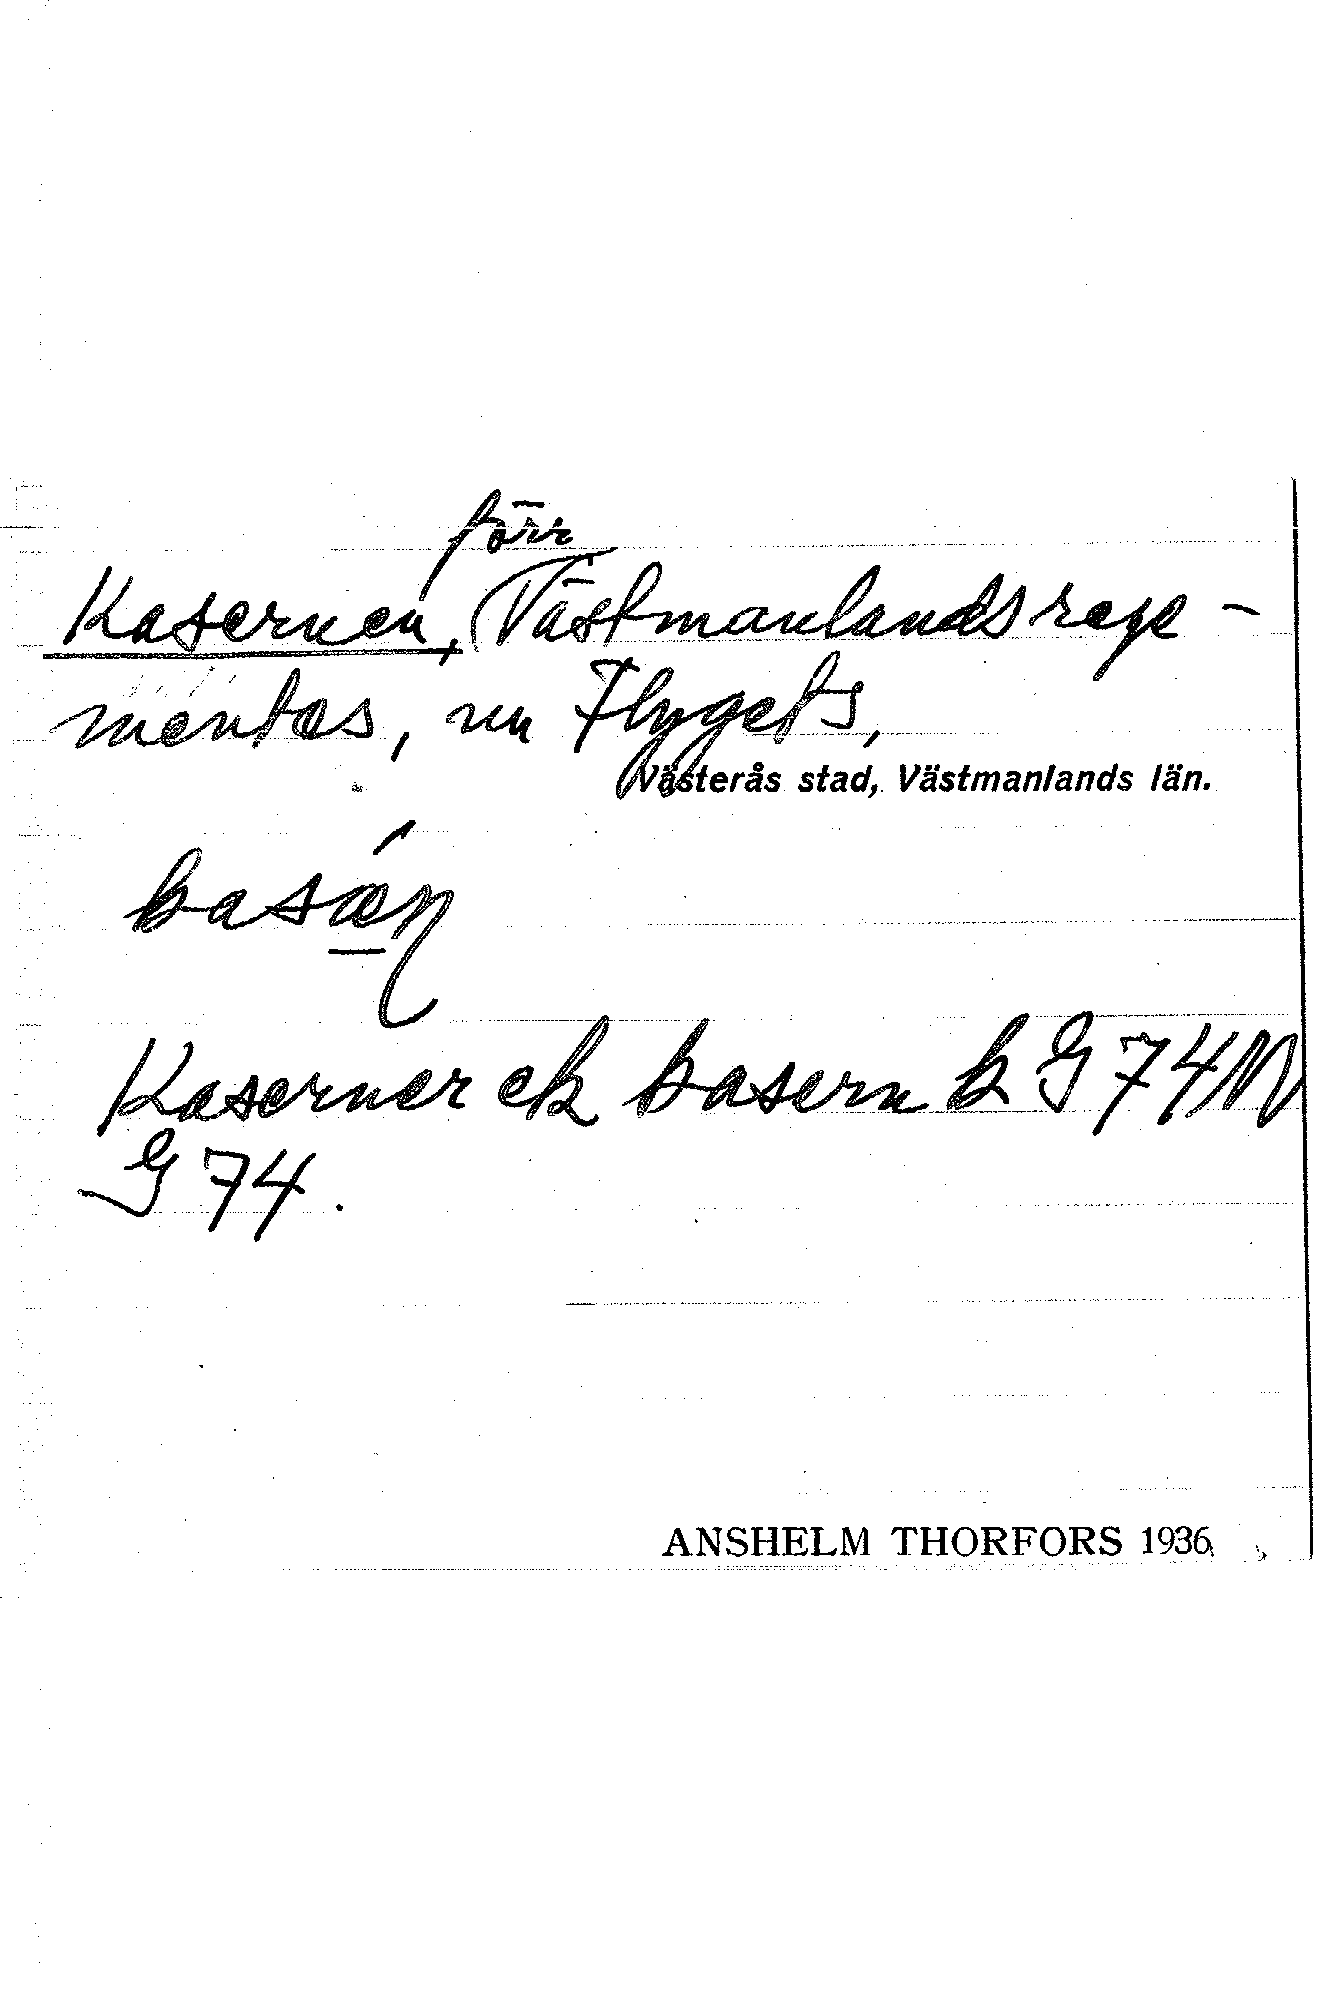 förr
Kasernen, (Västmanlandsrege-
mentes, nu Flygets,
Västerås stad, Västmanlands län.
kasǽ̱ɳ
Kaserner ek kasern k G 74 NV
G 74.
ANSHELM THORFORS 1936